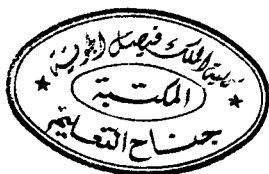 كلية الملك فيصل الجوية
المكتبة
جناح التعليم